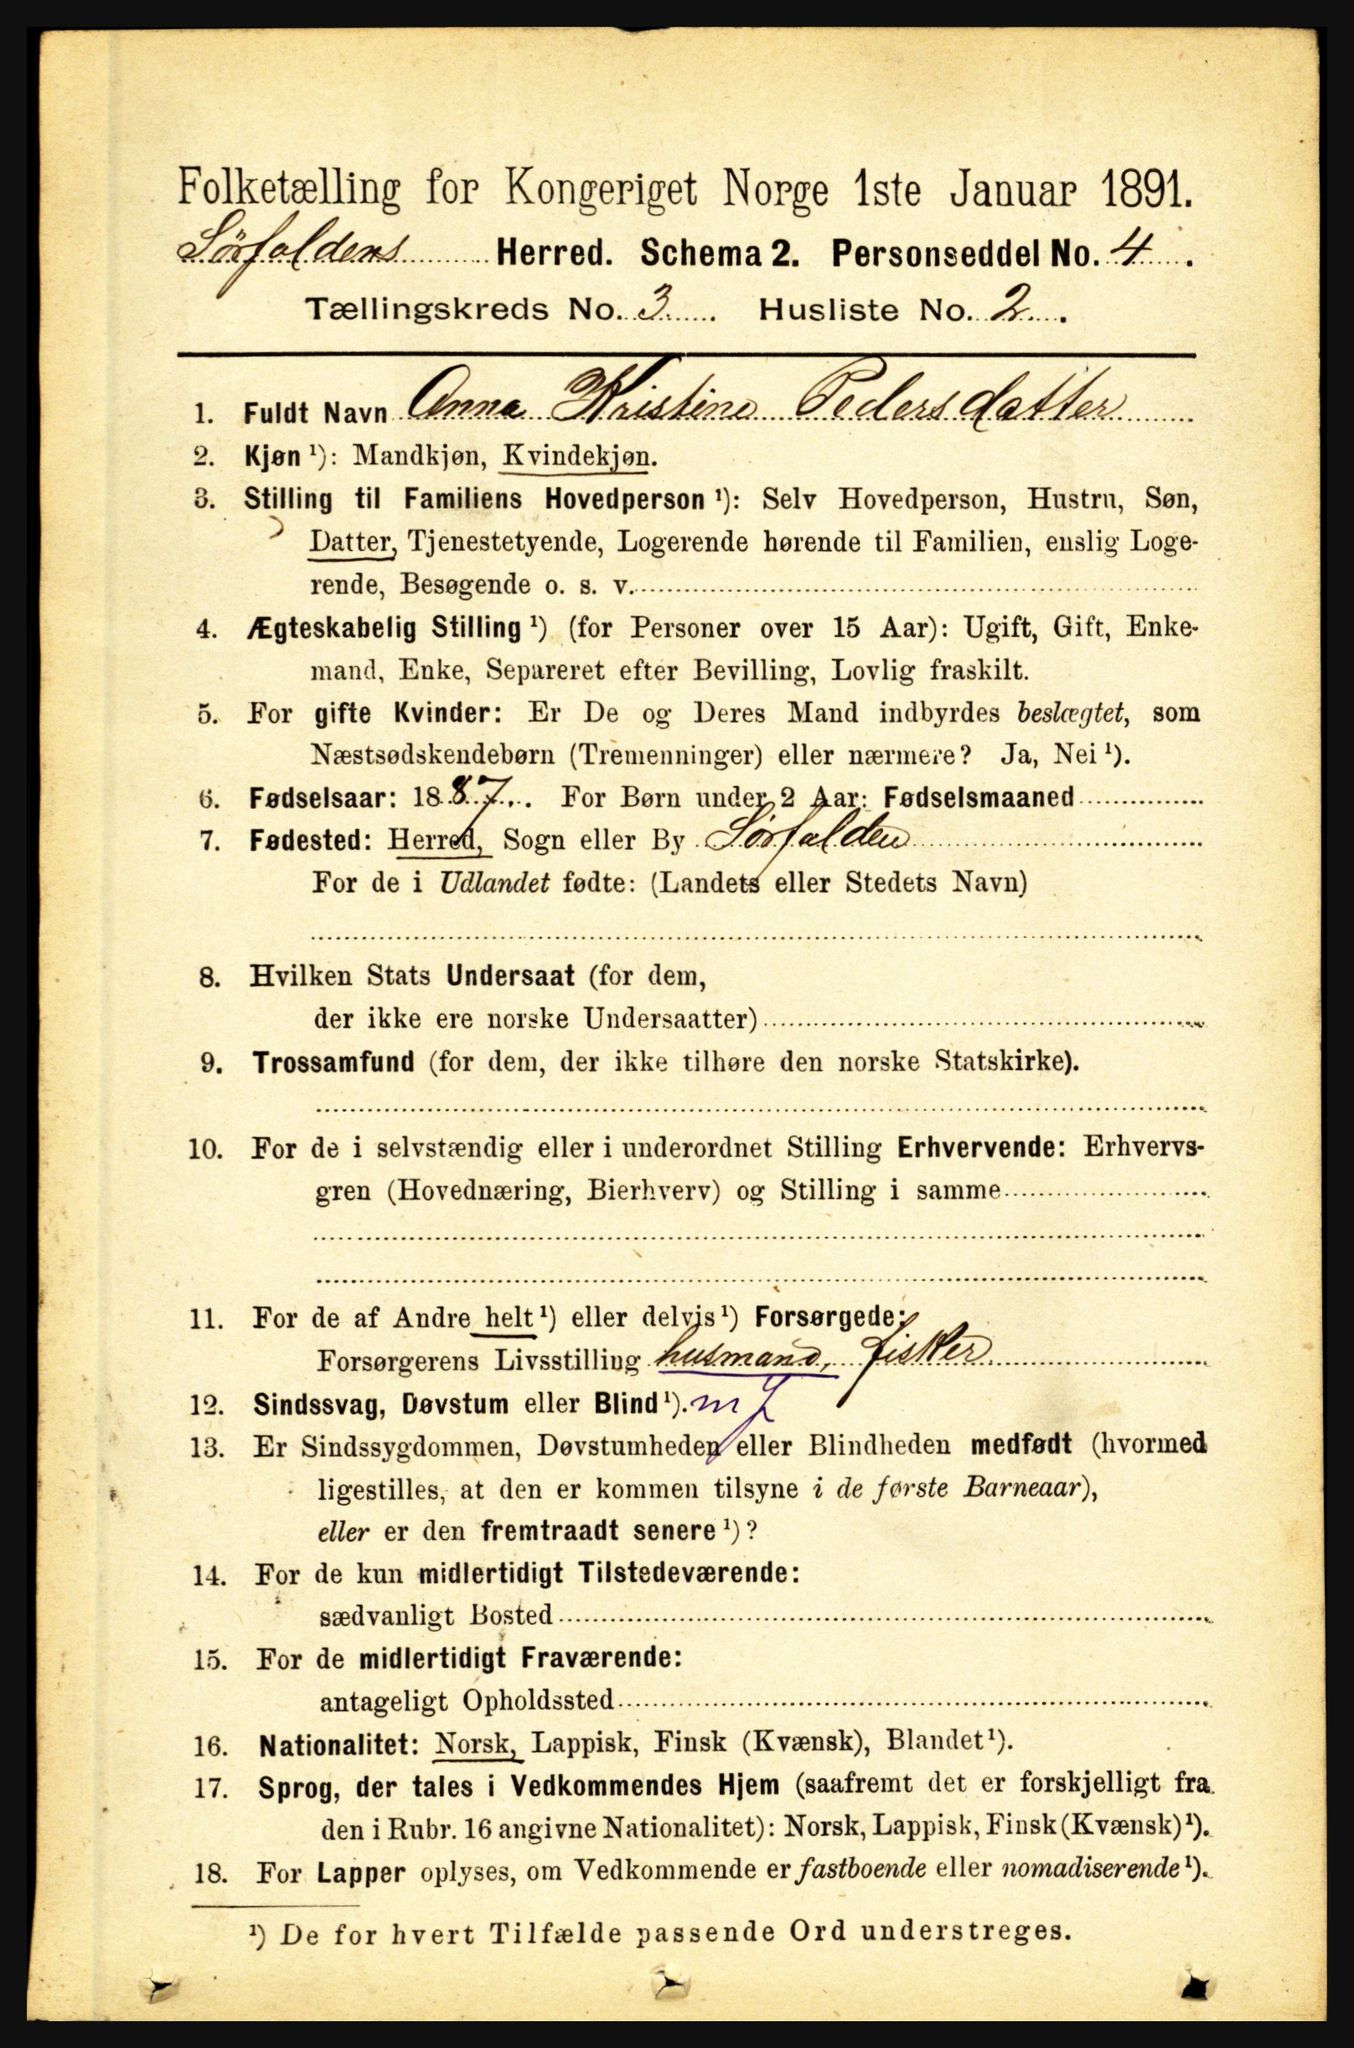 Folketælling for Kongeriget Norge 1ste Januar 1891.
Sørfoldens Herred. Schema 2. Personseddel No. 4.
Tællingskreds No. 3. Husliste No. 2.
1. Fuldt Navn Anna Kristine Pedersdatter
2. Kjøn ¹): Mandkjøn, Kvindekjøn.
3. Stilling til Familiens Hovedperson ¹): Selv Hovedperson, Hustru, Søn,
Datter, Tjenestetyende, Logerende hørende til Familien, enslig Loge-
rende, Besøgende o. s. v.
4. Ægteskabelig Stilling ¹) (for Personer over 15 Aar): Ugift, Gift, Enke-
mand, Enke, Separeret efter Bevilling, Lovlig fraskilt.
5. For gifte Kvinder: Er De og Deres Mand indbyrdes beslægtet, som
Næstsødskendebørn (Tremenninger) eller nærmere? Ja, Nei ¹).
6. Fødselsaar: 1887. For Børn under 2 Aar: Fødselsmaaned
7. Fødested: Herred, Sogn eller By Sørfolden
For de i Udlandet fødte: (Landets eller Stedets Navn)
8. Hvilken Stats Undersaat (for dem,
der ikke ere norske Undersaatter)
9. Trossamfund (for dem, der ikke tilhøre den norske Statskirke).
10. For de i selvstændig eller i underordnet Stilling Erhvervende: Erhvervs-
gren (Hovednæring, Bierhverv) og Stilling i samme
11. For de af Andre helt ¹) eller delvis ¹) Forsørgede:
Forsørgerens Livsstilling husmand, fisker
12. Sindssvag, Døvstum eller Blind ¹).
13. Er Sindssygdommen, Døvstumheden eller Blindheden medfødt (hvormed
ligestilles, at den er kommen tilsyne i de første Barneaar),
eller er den fremtraadt senere ¹)?
14. For de kun midlertidigt Tilstedeværende:
sædvanligt Bosted
15. For de midlertidigt Fraværende:
antageligt Opholdssted
16. Nationalitet: Norsk, Lappisk, Finsk (Kvænsk), Blandet ¹).
17. Sprog, der tales i Vedkommendes Hjem (saafremt det er forskjelligt fra
den i Rubr. 16 angivne Nationalitet): Norsk, Lappisk, Finsk (Kvænsk) ¹).
18. For Lapper oplyses, om Vedkommende er fastboende eller nomadiserende ¹).
¹) De for hvert Tilfælde passende Ord understreges.